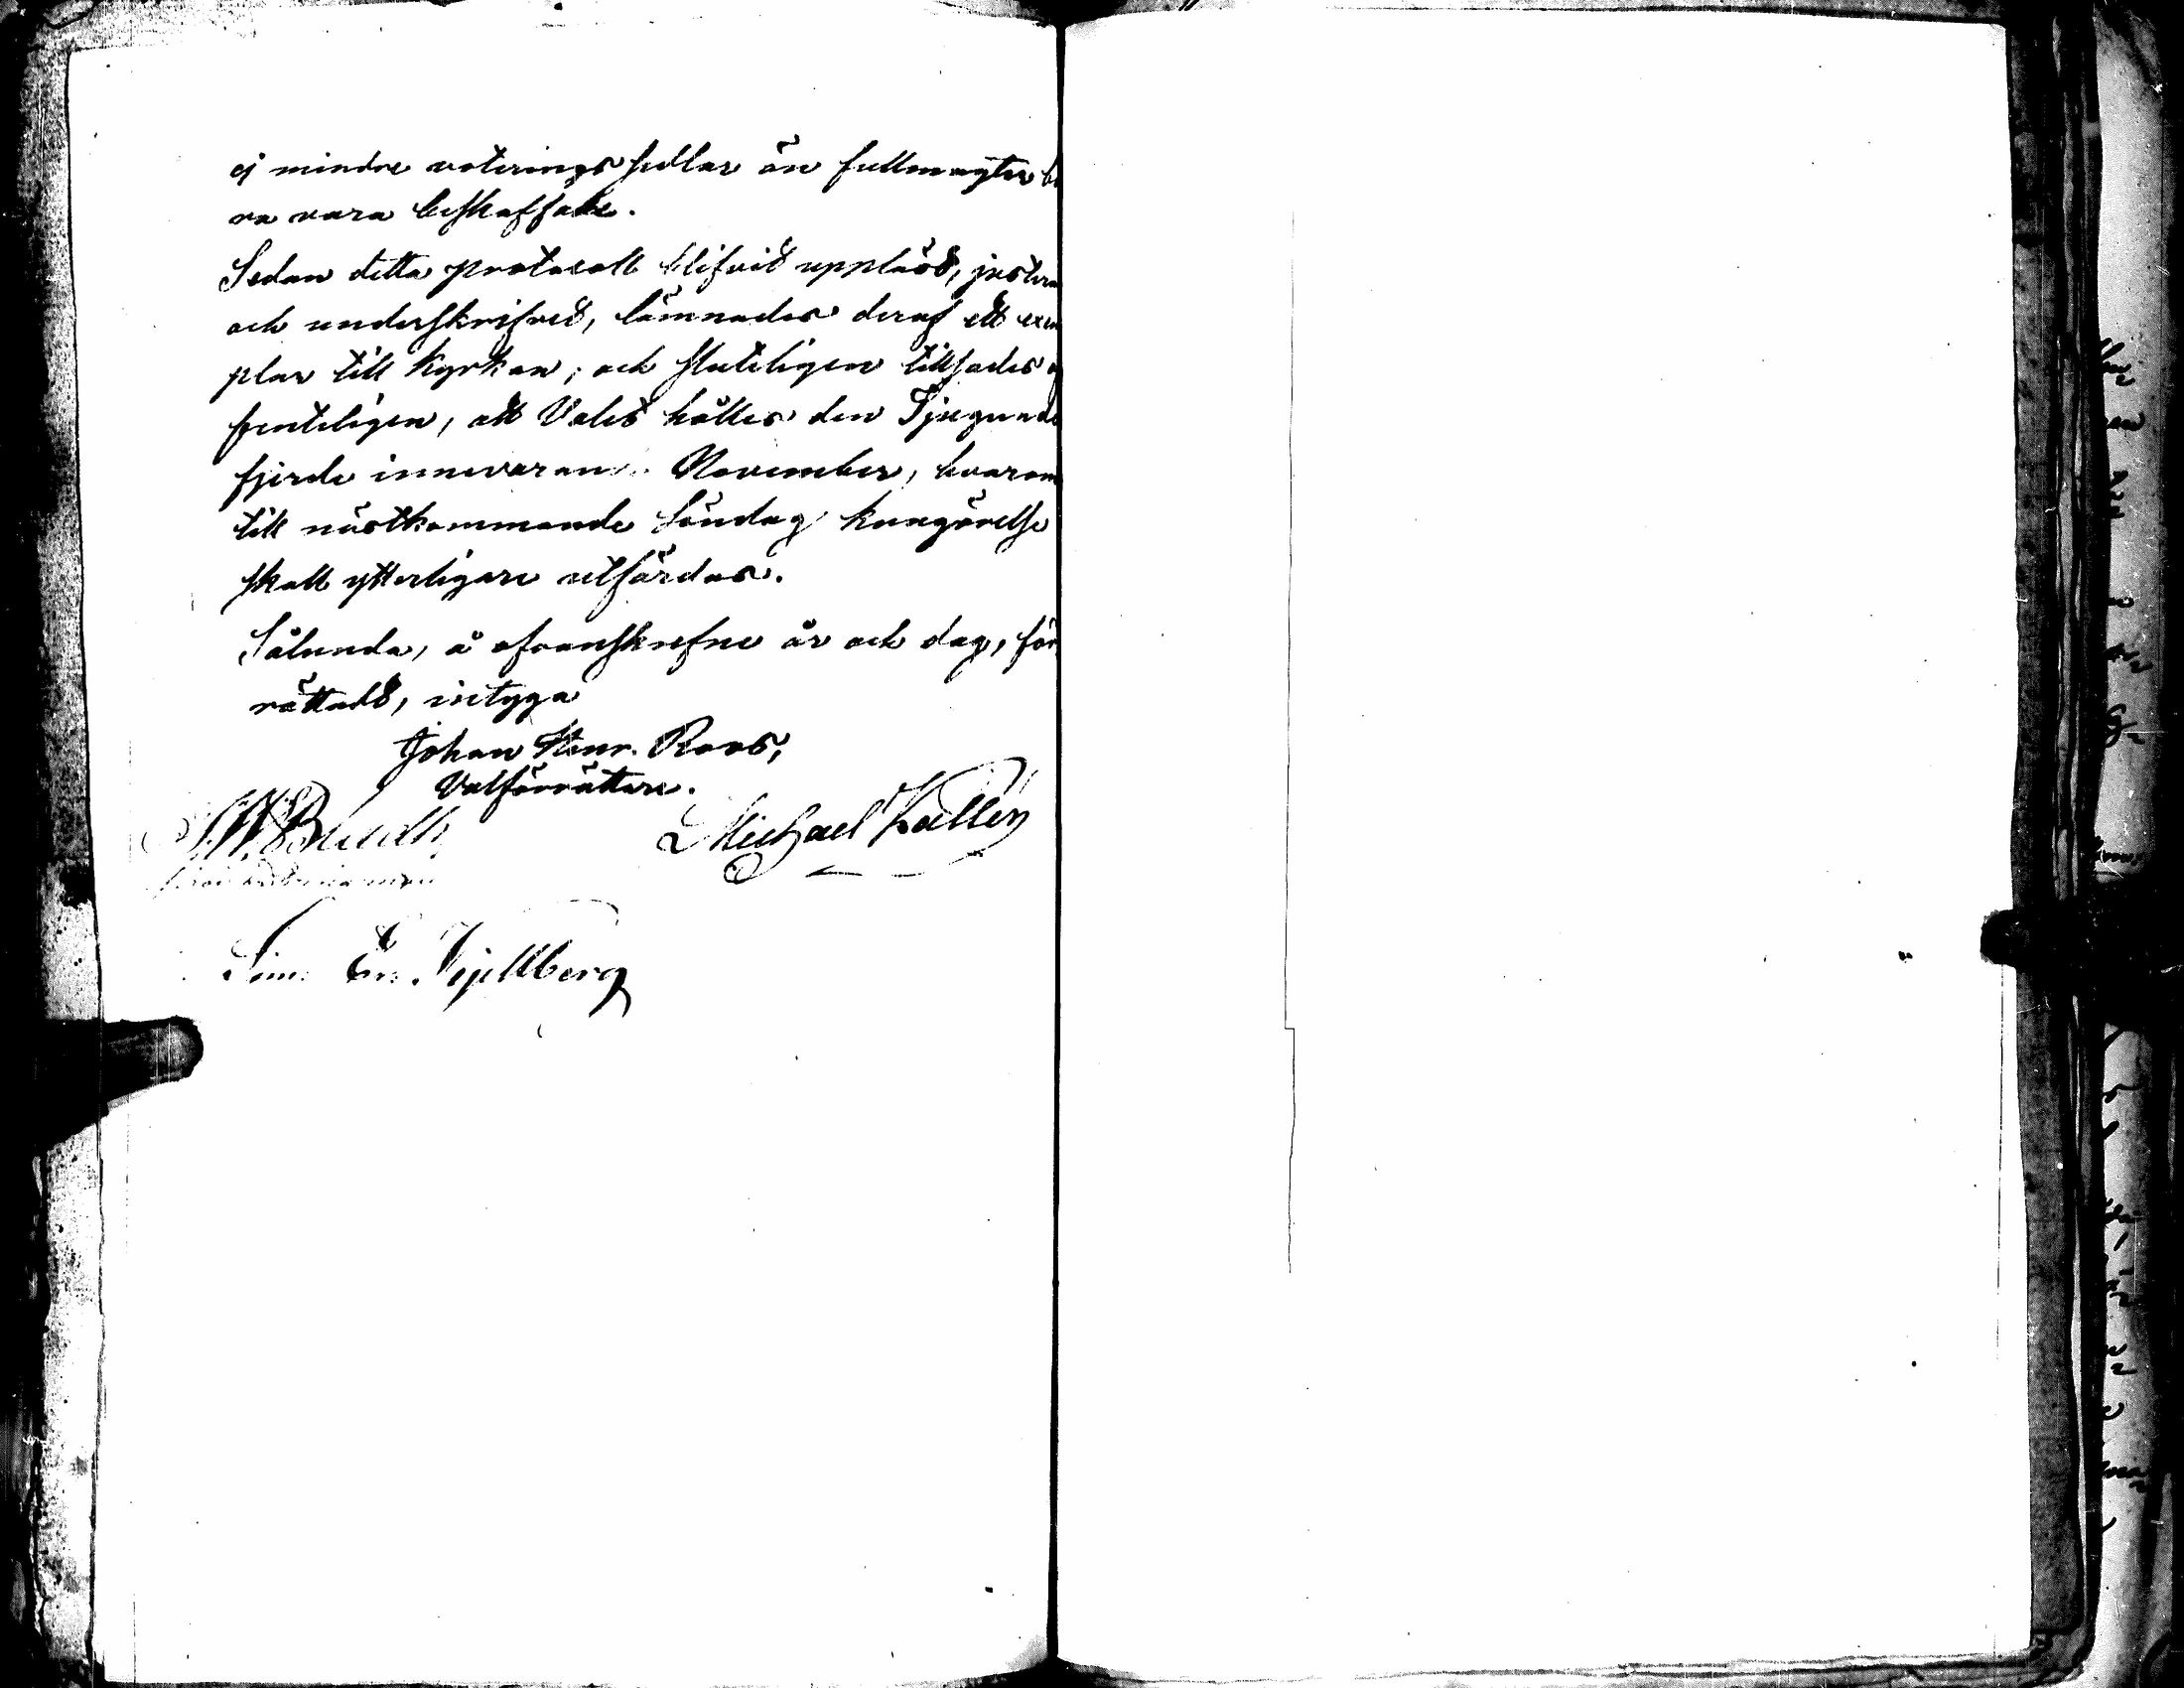 ej mindre voteringssedlar än fullmagter bö
ra vara beskaffade.
Sedan detta protocoll blifvit uppläst, justera
och underskrifvet, lämnades deraf ett exem
plar till kyrkan; och sluteligen tillsades o
fenteligen, att Valet hålles den Tjugunde
fjerde innevarande November, hvarom
till nästkommande Söndag kungörelse
skall ytterligare utfärdas.
Sålunda, å ofvanskrefne år och dag, för
rättadt, intyga
Johan Henr. Roos,
Valförrättare.
Michael Kallén
Sim. En. Kjellberg